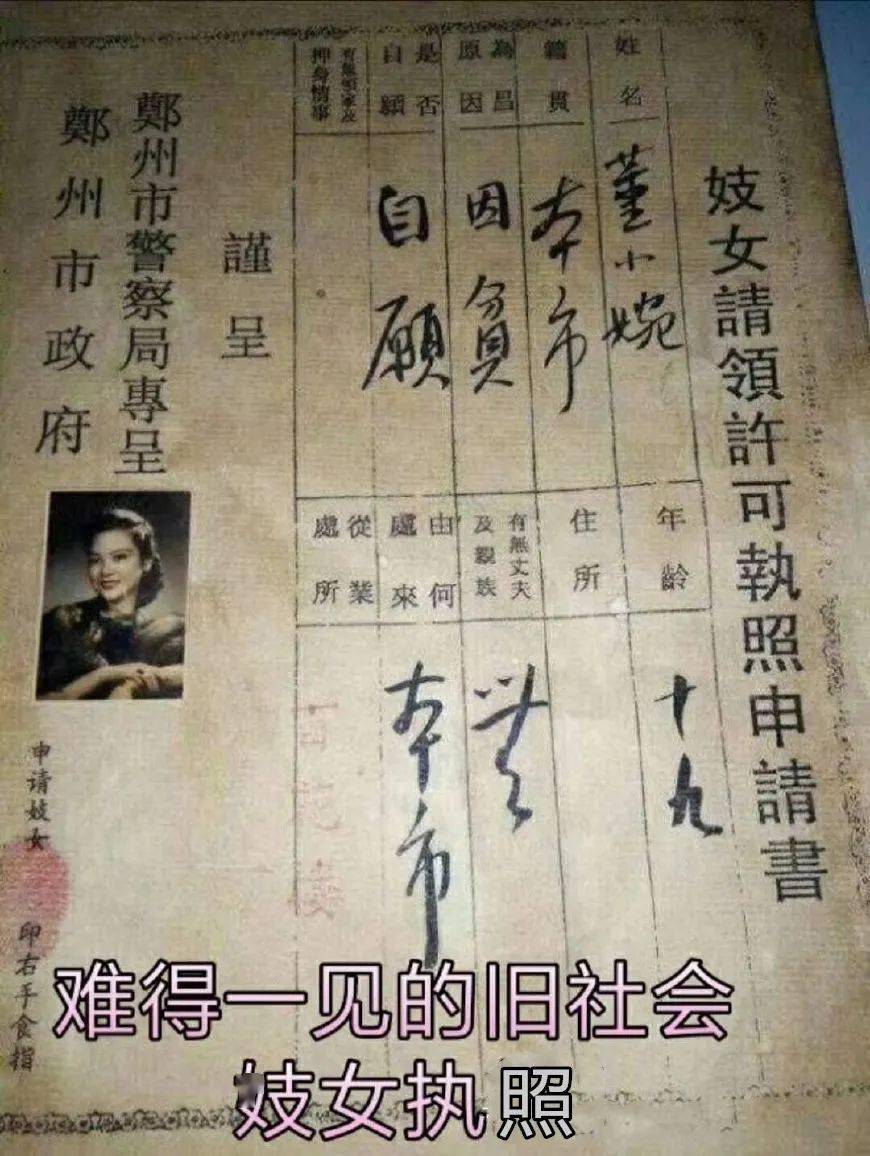 妓女請領許可執照申請書
姓名
董小婉
年齡
十九
籍貫
本市
住所
為昌原因
因貧
有無丈夫及親族
無
是否自願
自願
由何處來
本市
有無領家及押身情事
從業處所
百花楼
謹呈
鄭州市警察局專呈
鄭州市政府
申请妓女
印右手食指
难得一见的旧社会
妓女执照